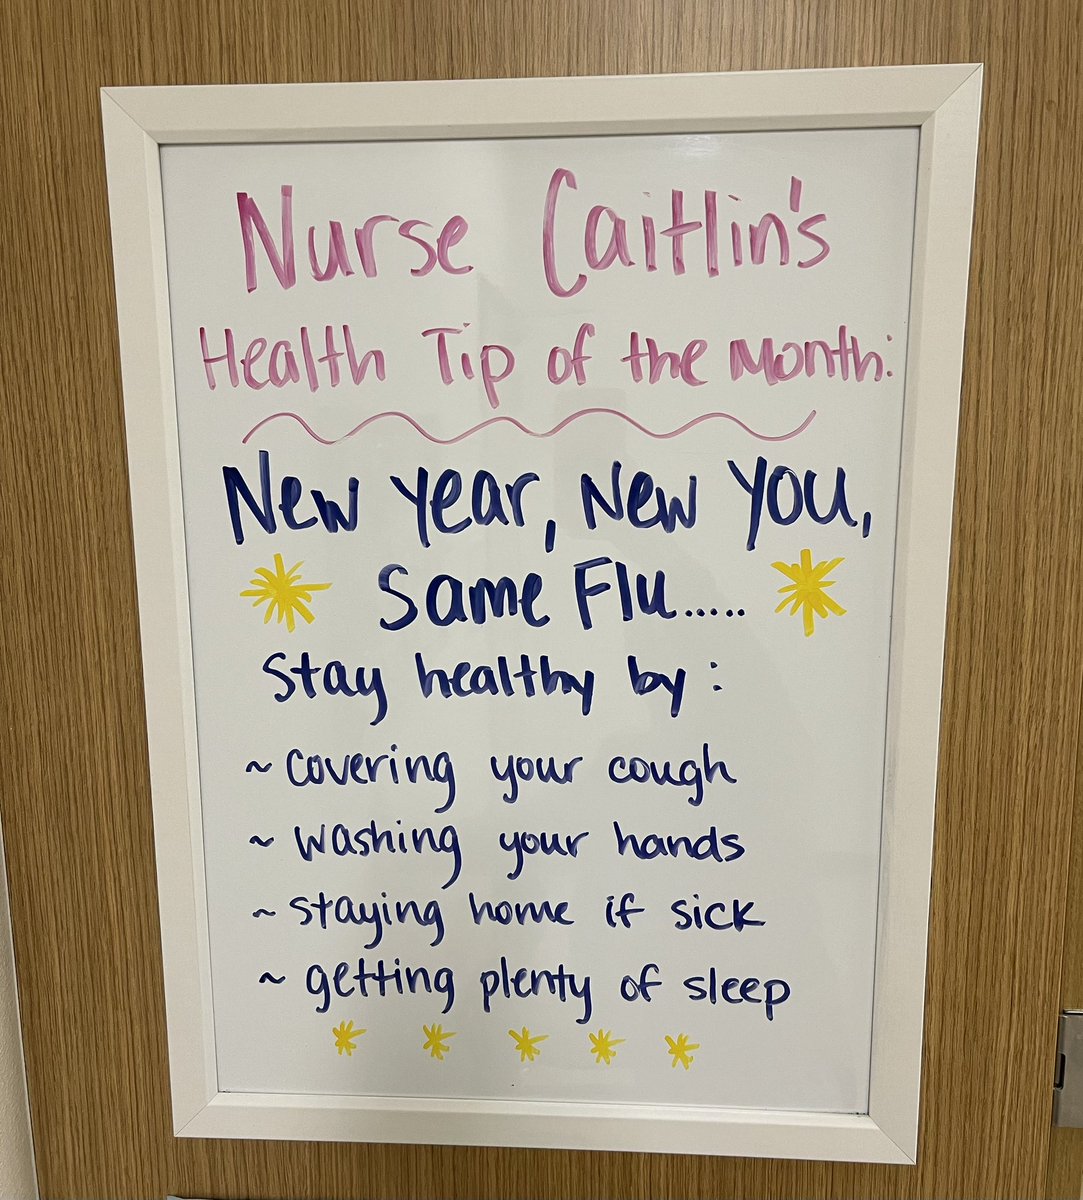 Nurse Caitlin's
Health Tip of the Month:
New Year, New You,
Same Flu.....
Stay healthy by:
~ covering your cough
~ washing your hands
~ staying home if sick
~ getting plenty of sleep